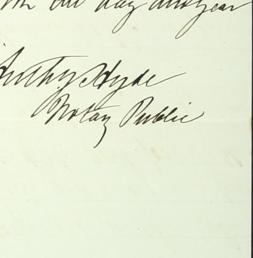 our day and year
Anthy Hyde
Notary Public